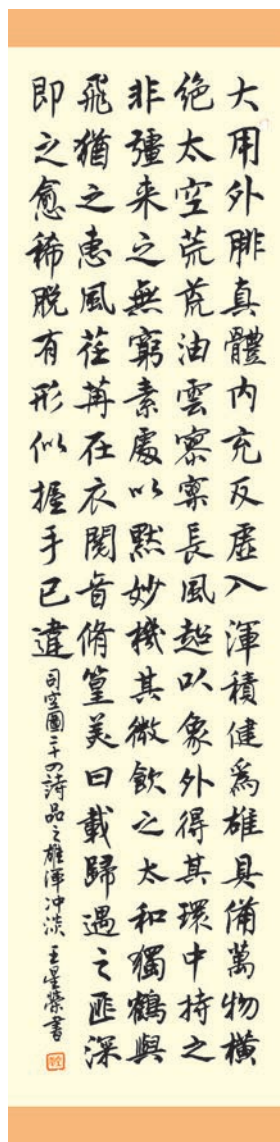 大用外腓真體内充反虛入渾積健爲雄具備萬物橫
絶太空荒荒油雲寥寥長風超以象外得其環中持之
非彊来之無窮素處以默妙機其微飲之太和獨鶴與
飛猶之惠風荏苒在衣閱音脩篁美曰載歸遇之匪深
即之愈稀脫有形似握手已違 司空圖二十四詩品之雄渾冲淡 王星榮書